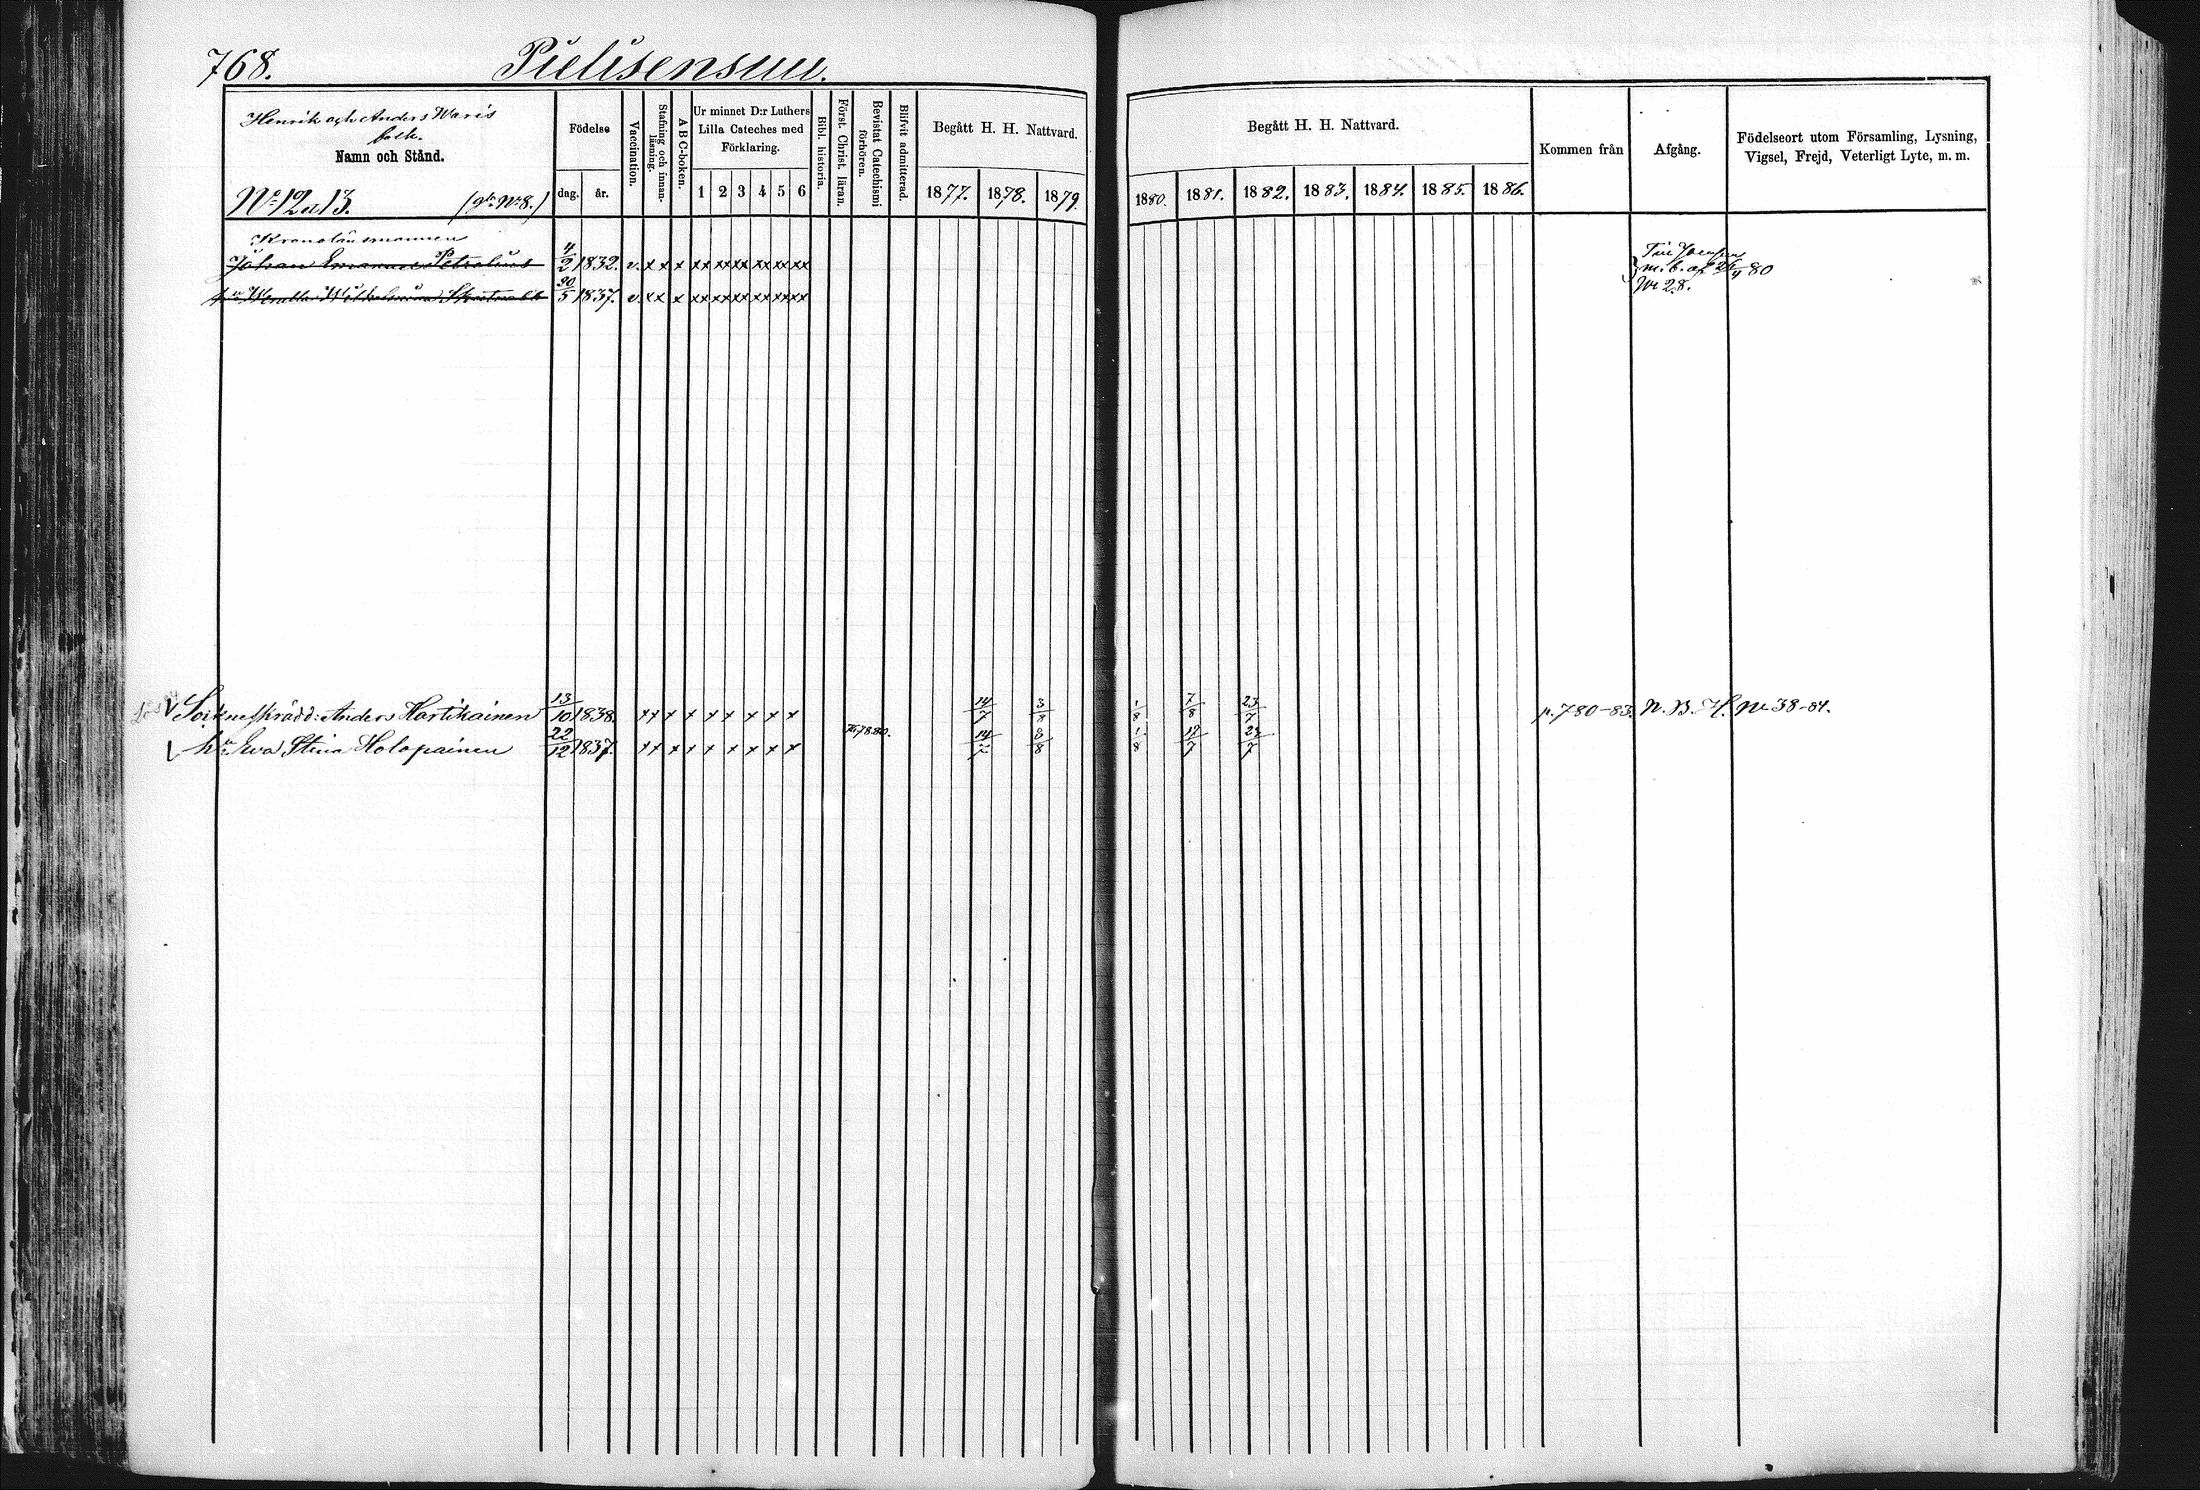 768.
Pielisensuu.
Henrik och Anders Waris
folk.
Namn och Stånd.
No 12 a 13. (gla No 8.)
Födelse
dag. år.
Vaccination.
Stafning och innanläsning.
A B C-boken.
Ur minnet D:r Luthers
Lilla Cateches med
Förklaring.
1 2 3 4 5 6
Bibl. historia.
Först. Christ. läran.
Bevistat Catechismi förhören.
Blifvit admitterad.
Begått H. H. Nattvard.
1877. 1878. 1879.
Begått H. H. Nattvard.
1880. 1881. 1882. 1883. 1884. 1885. 1886.
Kommen från
Afgång.
Födelseort utom Församling, Lysning,
Vigsel, Frejd, Veterligt Lyte, m. m.
Kronolänsmannen
Johan Emanuel Petrelius 4/2 1832. v. x x x xx xx xx xx xx xx
Till Joensuu
m. b. af 26/4 80
No 28.
hu Wendla Wilhelmina 30/5 1837. v. x x x xx xx xx xx xx xx
Sockneskrädd: Anders Hartikainen 13/10 1838. x x x x x x x x x 14/7 3/8 1/8 7/8 23/7 p. 780-83. N. B. H. No 38-84.
hu Eva Stina Holopainen 22/12 1837. x x x x x x x x x 78.80. 14/7 3/8 1/8 12/7 23/7